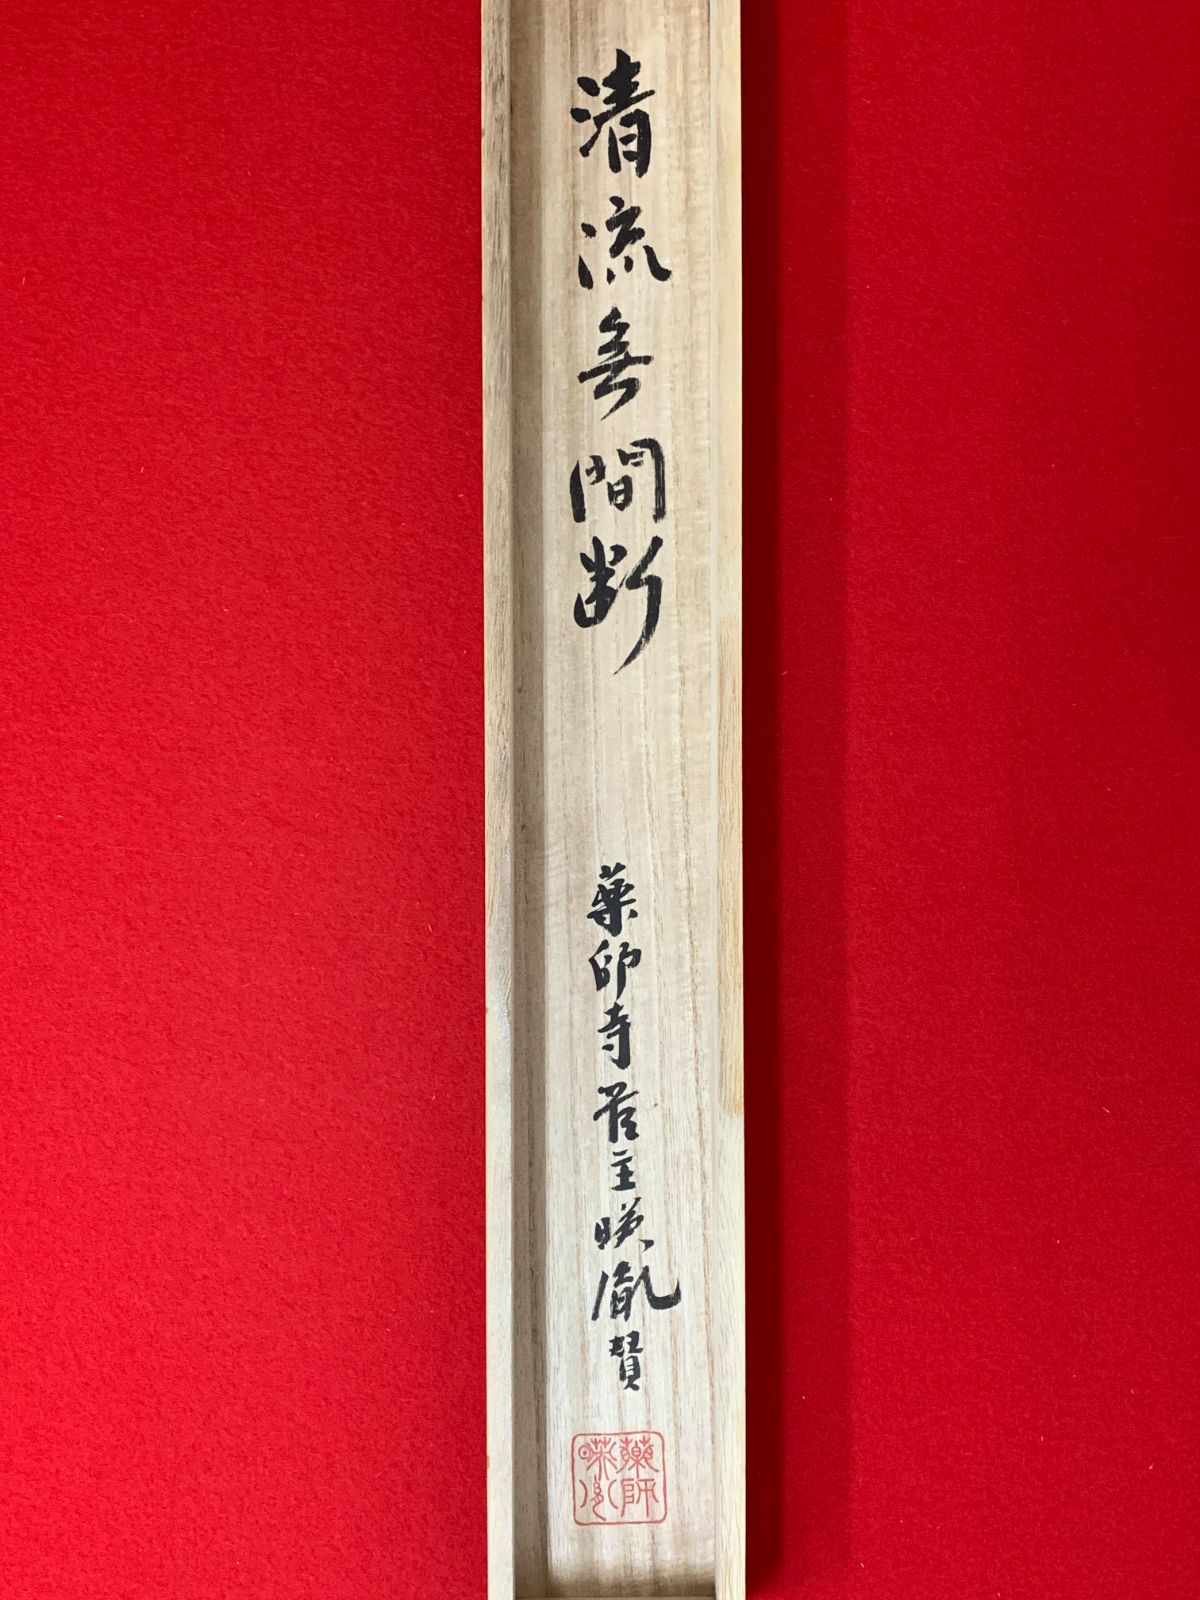 清流無間断
薬師寺管主暎胤賛
薬師
暎胤